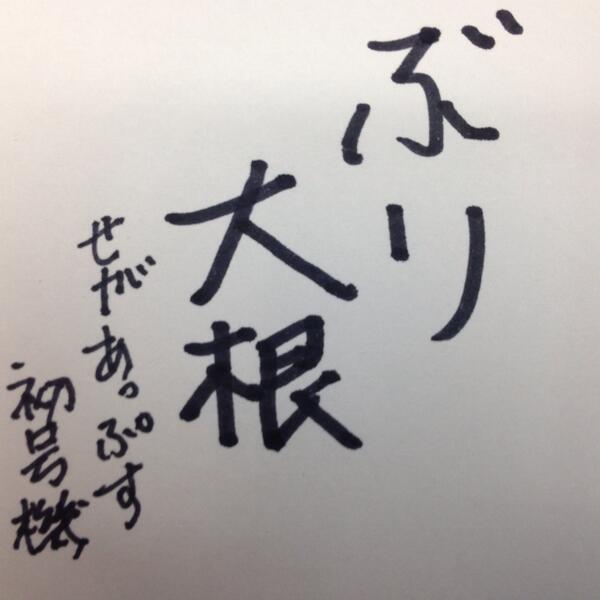 ぶり
大根
せがあっぷす
初号機